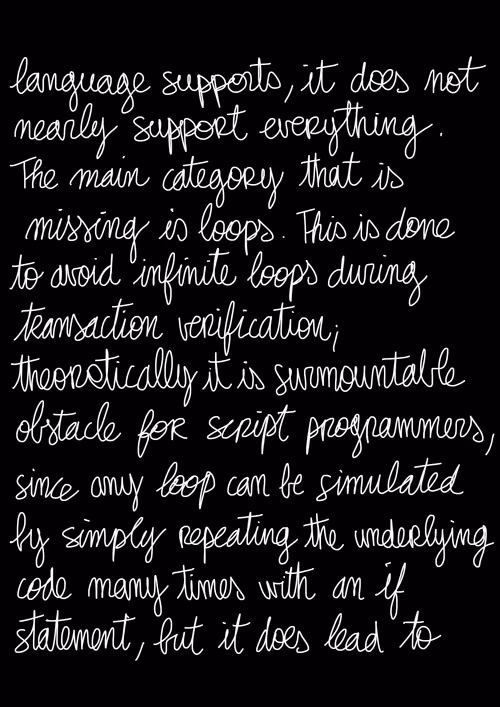 language supports, it does not
nearly support everything.
The main category that is
missing is loops. This is done
to avoid infinite loops during
transaction verification;
theoretically it is surmountable
obstacle for script programmers,
since any loop can be simulated
by simply repeating the underlying
code many times with an if
statement, but it does lead to